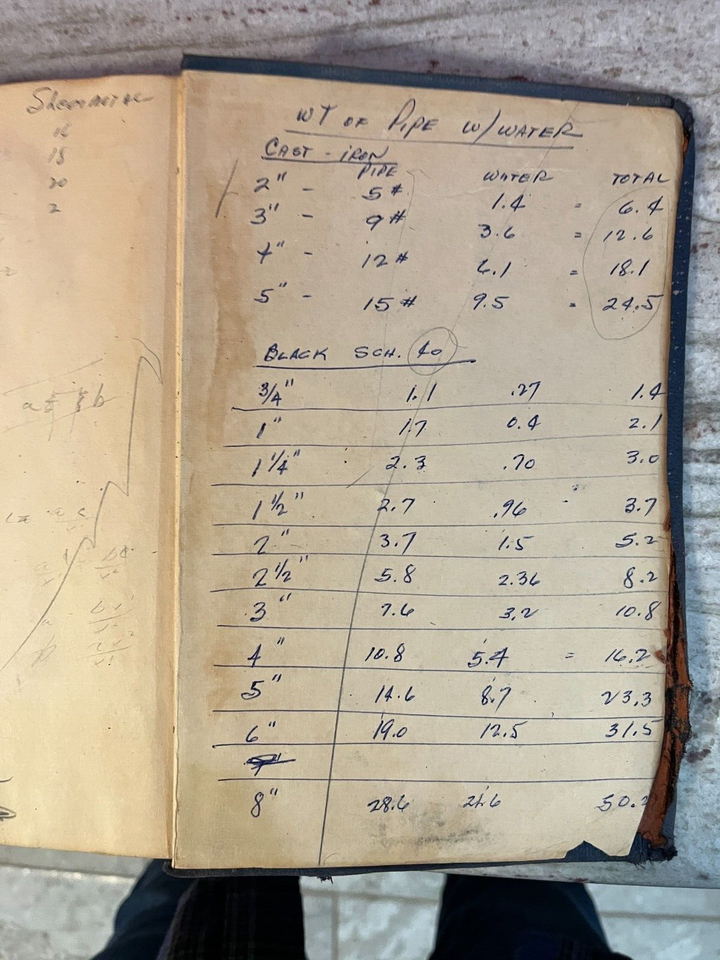 SheetMetal
16
18
20
2
a ≤ ξ b
WT OF PIPE W/WATER
CAST-IRON
PIPE WATER TOTAL
2" - 5# 1.4 = 6.4
3" - 9# 3.6 = 12.6
4" - 12# 6.1 = 18.1
5" - 15# 9.5 = 24.5
BLACK SCH. 40
3/4" 1.1 .27 1.4
1" 1.7 0.4 2.1
1 1/4" 2.3 .70 3.0
1 1/2" 2.7 .96 3.7
2" 3.7 1.5 5.2
2 1/2" 5.8 2.36 8.2
3" 7.6 3.2 10.8
4" 10.8 5.4 = 16.2
5" 14.6 8.7 23.3
6" 19.0 12.5 31.5
8" 28.6 21.6 50.2